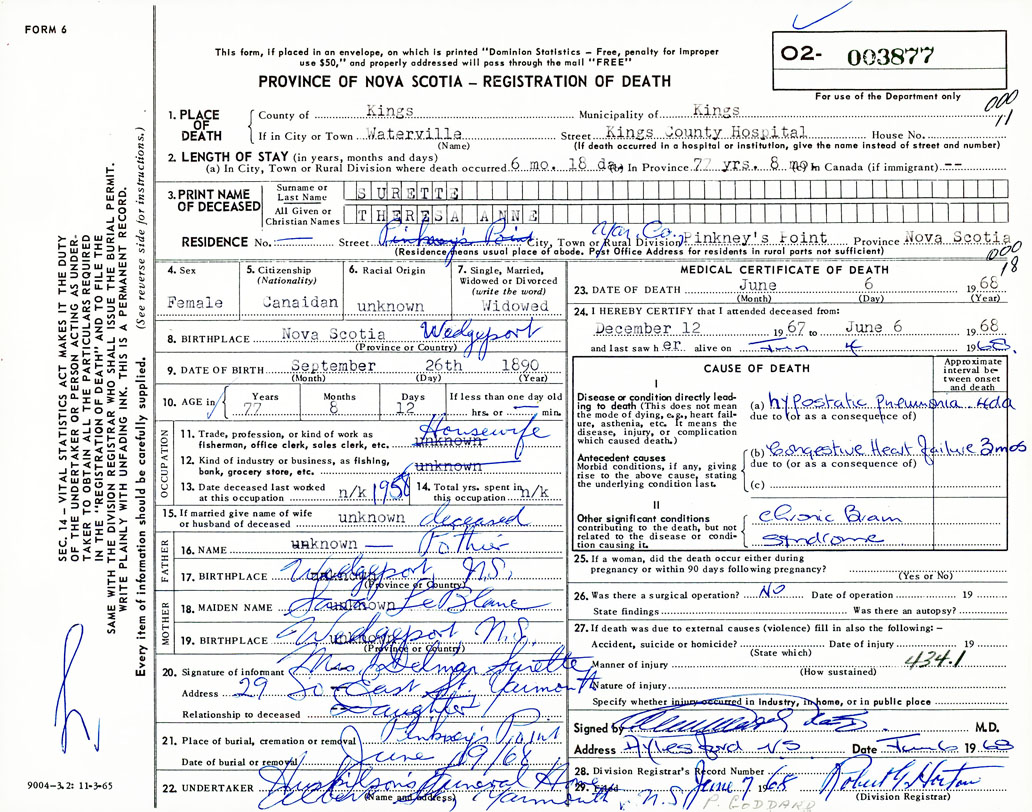 FORM 6
This form, if placed in an envelope, on which is printed "Dominion Statistics – Free, penalty for improper
use $50," and properly addressed will pass through the mail "FREE"
PROVINCE OF NOVA SCOTIA – REGISTRATION OF DEATH
02- 003877
For use of the Department only
000
11
1. PLACE OF DEATH
County of Kings Municipality of Kings
If in City or Town Waterville Street Kings County Hospital House No.
(Name) (If death occurred in a hospital or institution, give the name instead of street and number)
2. LENGTH OF STAY (in years, months and days)
(a) In City, Town or Rural Division where death occurred 6 mo. 18 da. In Province 77 yrs. 8 mo. In Canada (if immigrant) --
3. PRINT NAME OF DECEASED
Surname or Last Name SURETTE
All Given or Christian Names THERESA ANNE
RESIDENCE No. — Street Pinkney's Point City, Town or Rural Division Yar. Co. Pinkney's Point Province Nova Scotia
(Residence means usual place of abode. Post Office Address for residents in rural parts not sufficient)
000
18
4. Sex
Female
5. Citizenship
(Nationality)
Canaidan
6. Racial Origin
unknown
7. Single, Married,
Widowed or Divorced
(write the word)
Widowed
8. BIRTHPLACE Nova Scotia Wedgeport
(Province or Country)
9. DATE OF BIRTH September 26th 1890
(Month) (Day) (Year)
10. AGE in Years 77 Months 8 Days 12 If less than one day old
hrs. or — min.
OCCUPATION
11. Trade, profession, or kind of work as
fisherman, office clerk, sales clerk, etc. unknown Housewife
12. Kind of industry or business, as fishing,
bank, grocery store, etc. unknown
13. Date deceased last worked
at this occupation n/k 1958
14. Total yrs. spent in
this occupation n/k
15. If married give name of wife
or husband of deceased unknown deceased
FATHER
16. NAME unknown — Pothier
17. BIRTHPLACE unknown Wedgeport N.S.
(Province or Country)
MOTHER
18. MAIDEN NAME unknown LeBlanc
19. BIRTHPLACE unknown Wedgeport N.S.
(Province or Country)
20. Signature of informant Mrs. Delmar Surette
Address 29 So. East St. Yarmouth
Relationship to deceased Daughter
21. Place of burial, cremation or removal Pinkney's Point
Date of burial or removal June 19/68
22. UNDERTAKER Funeral Home Yarmouth N.S.
(Name and address)
MEDICAL CERTIFICATE OF DEATH
23. DATE OF DEATH June 6 1968
(Month) (Day) (Year)
24. I HEREBY CERTIFY that I attended deceased from:
December 12 1967 to June 6 1968
and last saw her alive on Jun 4 1968.
CAUSE OF DEATH
Approximate interval between onset and death
I
Disease or condition directly lead-
ing to death (This does not mean
the mode of dying, e.g., heart fail-
ure, asthenia, etc. It means the
disease, injury, or complication
which caused death.)
(a) Hypostatic Pneumonia 4da
due to (or as a consequence of)
Antecedent causes
Morbid conditions, if any, giving
rise to the above cause, stating
the underlying condition last.
(b) Congestive Heart failure 3mos
due to (or as a consequence of)
(c)
II
Other significant conditions
contributing to the death, but not
related to the disease or condi-
tion causing it.
Chronic Brain
Syndrome
25. If a woman, did the death occur either during
pregnancy or within 90 days following pregnancy?
(Yes or No)
26. Was there a surgical operation? NO Date of operation 19
State findings Was there an autopsy?
27. If death was due to external causes (violence) fill in also the following: –
Accident, suicide or homicide? Date of injury 19
(State which)
434.1
Manner of injury
(How sustained)
Nature of injury
Specify whether injury occurred in Industry, in home, or in public place
Signed by M.D.
Address Aylesford NS Date Jun 6 1968
28. Division Registrar's Record Number
29. Filed June 7 1968 Robert G. Horton
(Division Registrar)
P. GODDARD
SEC. 14 – VITAL STATISTICS ACT MAKES IT THE DUTY
OF THE UNDERTAKER OR PERSON ACTING AS UNDER-
TAKER TO OBTAIN ALL THE PARTICULARS REQUIRED
IN THE "REGISTRATION OF DEATH" AND TO FILE THE
SAME WITH THE DIVISION REGISTRAR WHO SHALL ISSUE THE BURIAL PERMIT.
WRITE PLAINLY WITH UNFADING INK. THIS IS A PERMANENT RECORD.
Every item of information should be carefully supplied. (See reverse side for instructions.)
9004-3.2: 11-3-65